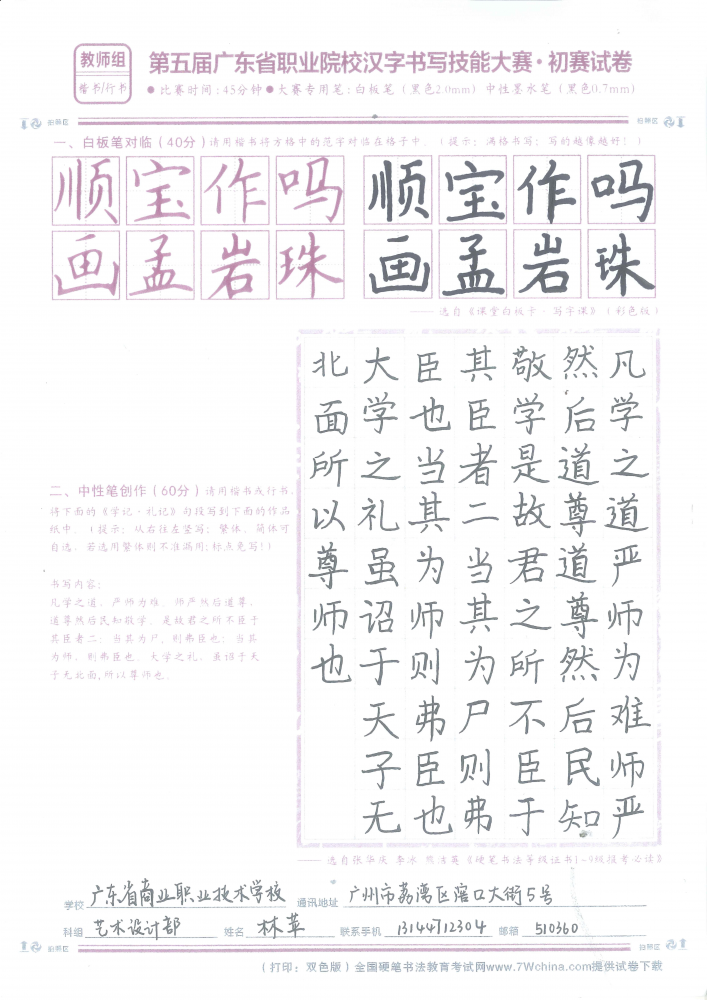 教师组
楷书/行书
第五届广东省职业院校汉字书写技能大赛·初赛试卷
●比赛时间:45分钟●大赛专用笔:白板笔(黑色2.0mm)中性墨水笔(黑色0.7mm)
扫描区
扫描区
一、白板笔对临(40分)请用楷书将方格中的范字对临在格子中。(提示:满格书写;写的越像越好!)
顺宝作吗
画孟岩珠
顺宝作吗
画孟岩珠
——选自《课堂白板字·写字课》(彩色版)
二、中性笔创作(60分)请用楷书或行书,
将下面的《学记·礼记》句段写到下面的作品
纸中。(提示:从右往左竖写;繁体、简体可
自选,若选用繁体则不准漏用;标点免写!)
书写内容:
凡学之道,严师为难。师严然后道尊,
道尊然后民知敬学。是故君之所不臣于
其臣者二:当其为尸,则弗臣也;当其
为师,则弗臣也。大学之礼,虽诏于天
子无北面;所以尊师也。
凡学之道严师为难师严
然后道尊道尊然后民知
敬学是故君之所不臣于
其臣者二当其为尸则弗
臣也当其为师则弗臣也
大学之礼虽诏于天子无
北面所以尊师也
——选自张华庆 李冰 熊洁英《硬笔书法等级证书1-9级报考必读》
学校 广东省商业职业技术学校 通讯地址 广州市荔湾区滘口大街5号
科组 艺术设计部 姓名 林苹 联系手机 13144712304 邮编 510360
扫描区
扫描区
(打印:双色版)全国硬笔书法教育考试网www.7Wchina.com提供试卷下载